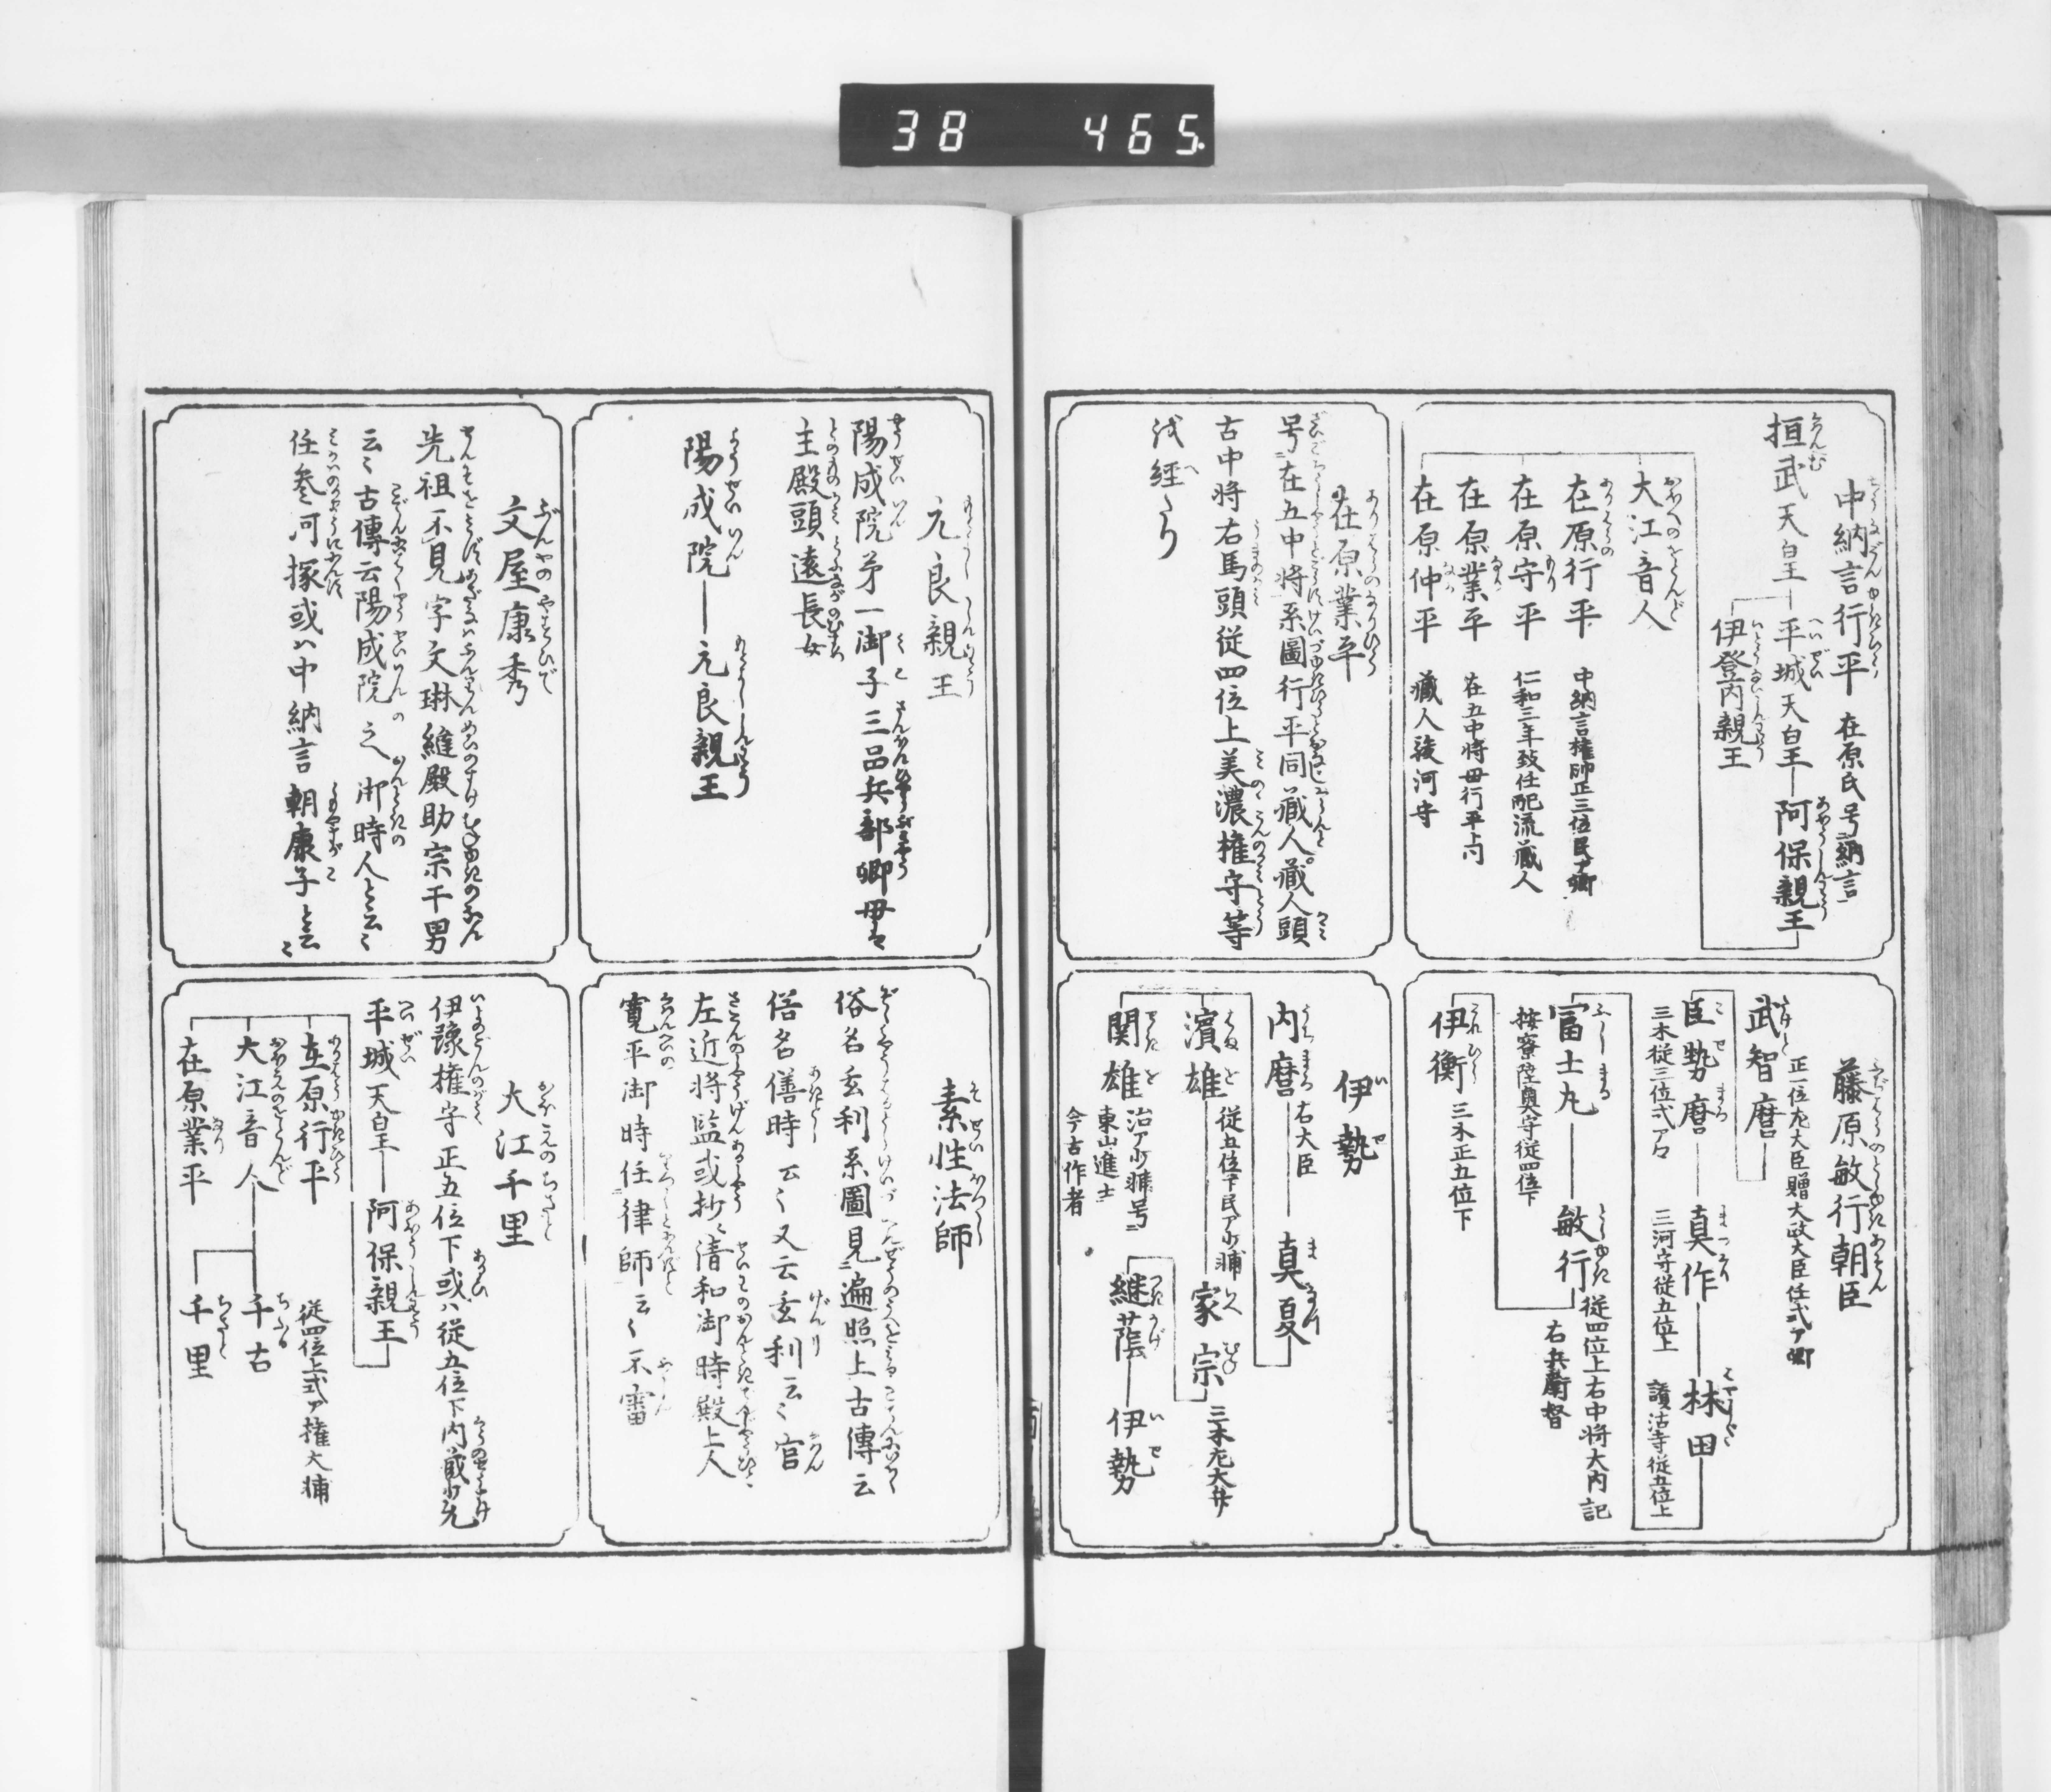 38 465
中納言行平 在原氏号納言
桓武天皇 平城天皇 阿保親王
伊登内親王
大江音人
在原行平 中納言権帥正三位民ア卿
在原守平 仁和三年致仕配流蔵人
在原業平 在五中将母行平ト同
在原仲平 蔵人駿河守
在原業平
号在五中将系圖行平同蔵人蔵人頭
古中将右馬頭従四位上美濃権守等
を経へたり
藤原敏行朝臣
武智麿 正一位左大臣贈大政大臣任式ア卿
巨勢麿 三木従三位式ア
真作 三河守従五位上
林田 従五位上
冨士丸 按察陸奥守従四位下
敏行 従四位上右中将大内記
右兵衛督
伊衡 三木正五位下
伊勢
内麿 右大臣 真夏
濱雄 従五位下民ア少輔 家宗 三木左大弁
関雄 治ア少輔号
東山進士
今古作者
継蔭 伊勢
元良親王
陽成院㐧一御子三品兵部卿母は
主殿頭遠長女
陽成院 元良親王
文屋康秀
先祖不見字文琳縫殿助宗于男
云〻古傳云陽成院之御時人と云〻
任参河掾或ハ中納言朝康子と云〻
素性法師
俗名玄利系圖見遍照上古傳云
俗名僐時云〻又云玄利云〻官
左近将監或抄ニ清和御時殿上人
寛平御時任律師云〻不審
大江千里
伊豫権守正五位下或ハ従五位下内蔵少允
平城天皇 阿保親王
在原行平
大江音人 千古 従四位上式ア権大輔
千里
在原業平